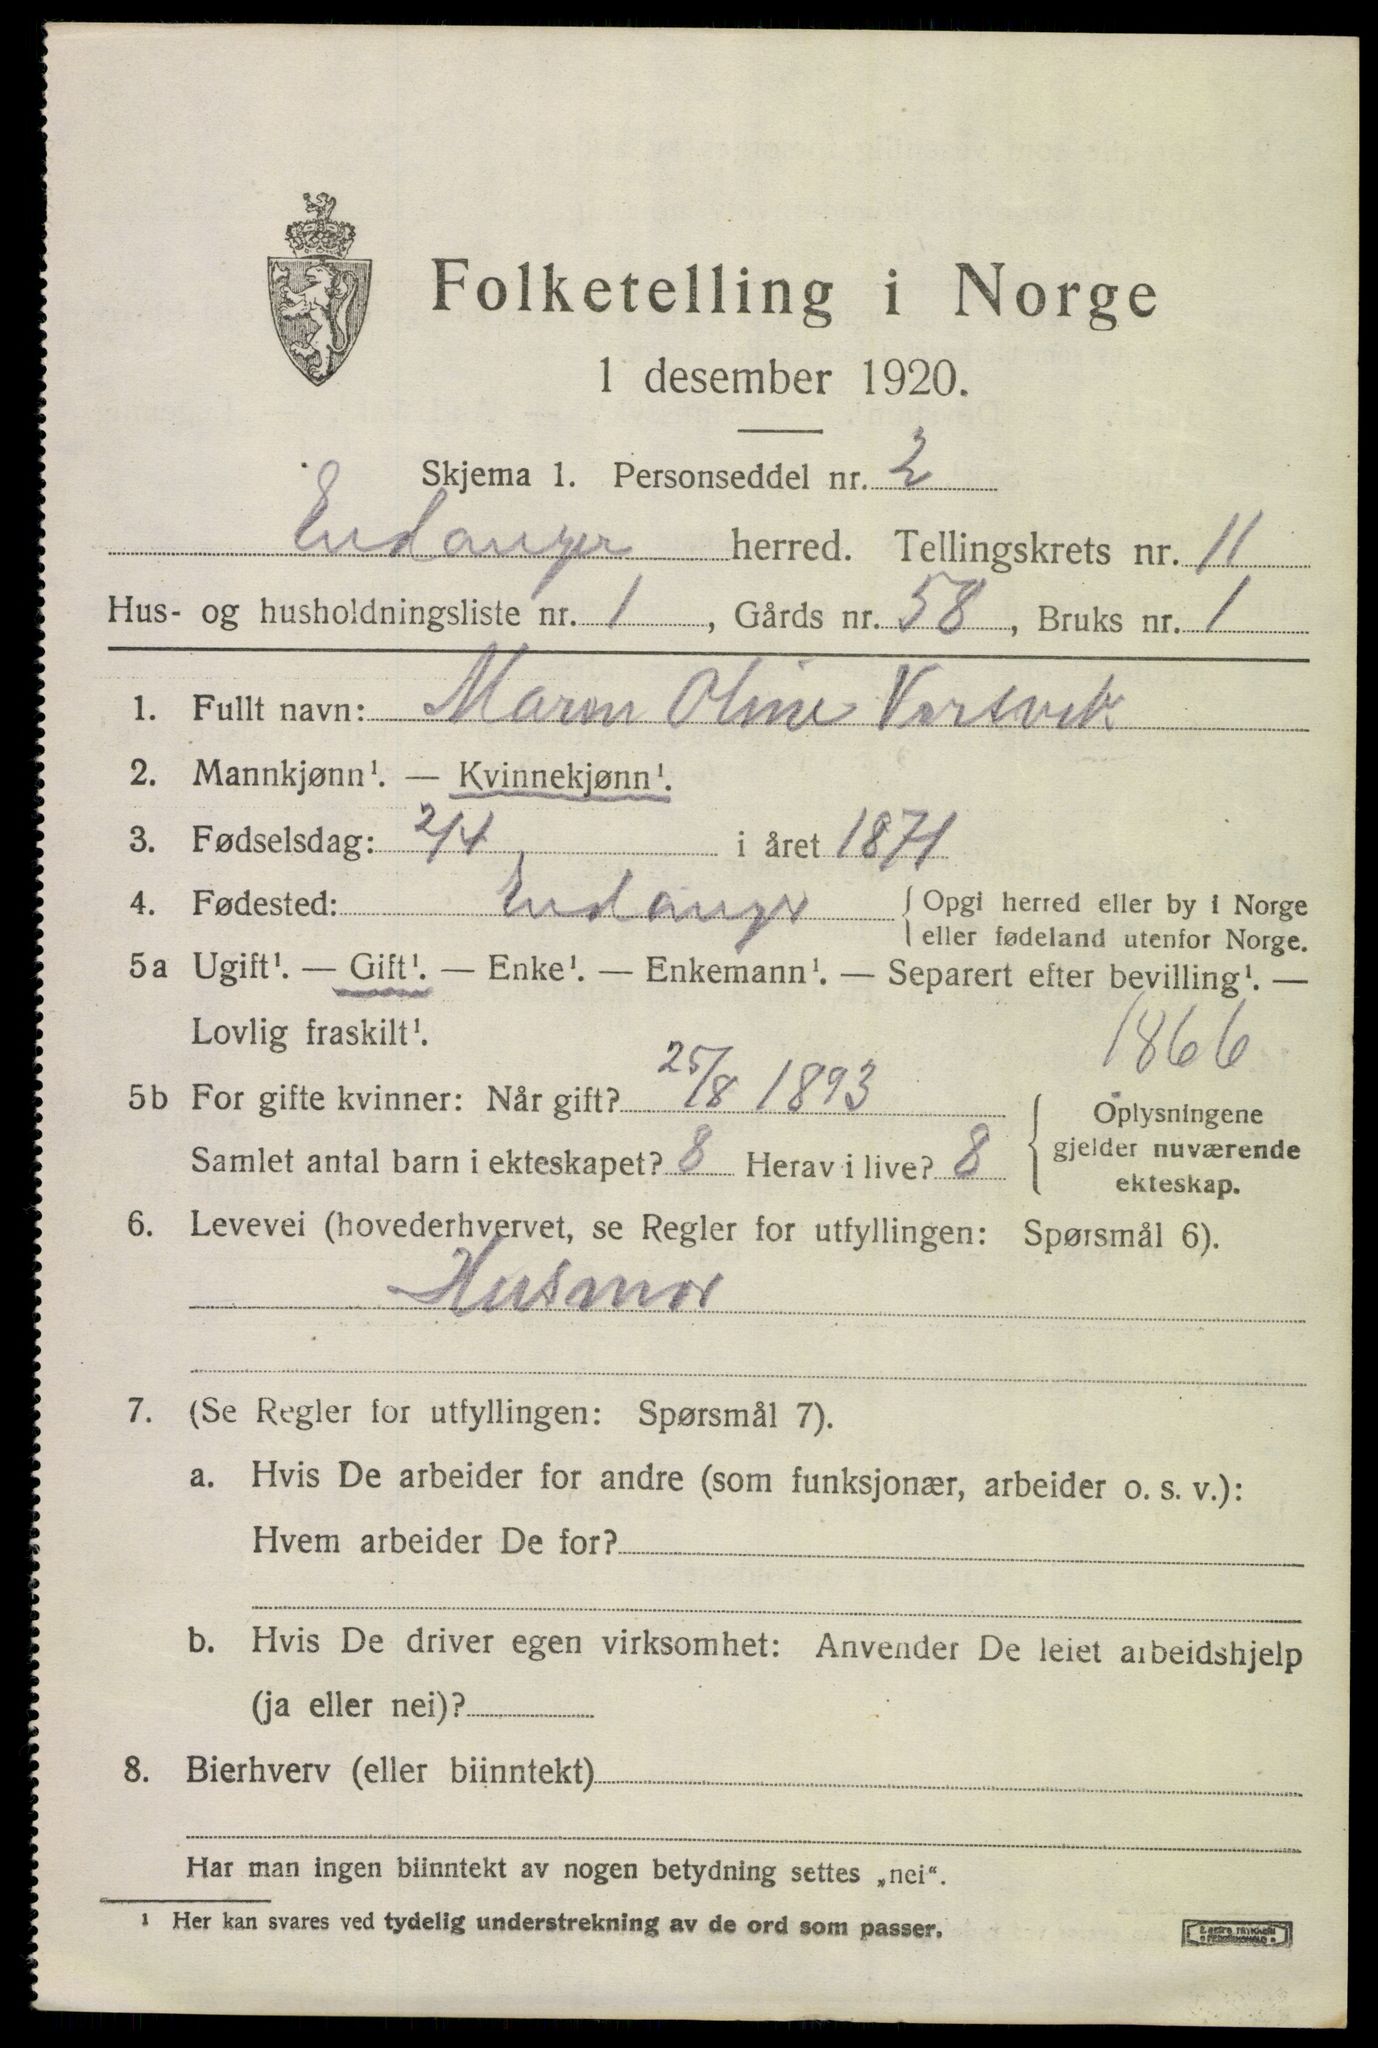 Folketelling i Norge
1 desember 1920.
Skjema 1. Personseddel nr. 2
Eidanger herred. Tellingskrets nr. 11
Hus- og husholdningsliste nr. 1, Gårds nr. 58, Bruks nr. 1
1. Fullt navn: Maren Oline Versvik
2. Mannkjønn¹. — Kvinnekjønn¹.
3. Fødselsdag: 2/4 i året 1871
4. Fødested: Eidanger { Opgi herred eller by i Norge
eller fødeland utenfor Norge.
5a Ugift¹. — Gift¹. — Enke¹. — Enkemann¹. — Separert efter bevilling¹. —
Lovlig fraskilt¹.
1866
5b For gifte kvinner: Når gift? 25/8 1893
Samlet antal barn i ekteskapet? 8 Herav i live? 8
{ Oplysningene
gjelder nuværende
ekteskap.
6. Levevei (hovederhvervet, se Regler for utfyllingen: Spørsmål 6).
Husmor
7. (Se Regler for utfyllingen: Spørsmål 7).
a. Hvis De arbeider for andre (som funksjonær, arbeider o. s. v.):
Hvem arbeider De for?
b. Hvis De driver egen virksomhet: Anvender De leiet arbeidshjelp
(ja eller nei)?
8. Bierhverv (eller biinntekt)
Har man ingen biinntekt av nogen betydning settes „nei“.
¹ Her kan svares ved tydelig understrekning av de ord som passer.